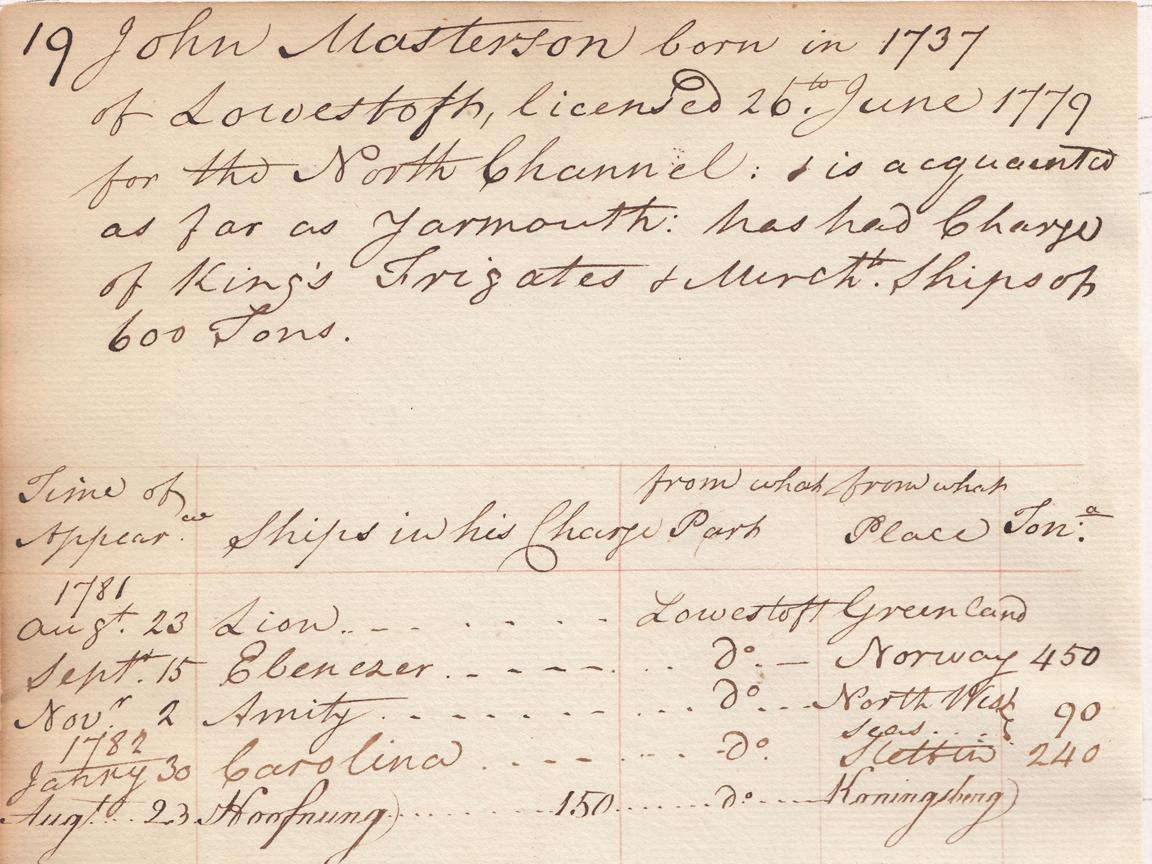 19 John Masterson born in 1737
of Lowestoft, licensed 26.th June 1779
for the North Channel: & is acquainted
as far as Yarmouth: has had Charge
of King's Frigates & Mercht. Ships of
600 Tons.
Time of Appear.ce Ships in his Charge from what Part from what Place Ton:a
1781
Augt. 23 Lion Lowestoft Greenland
Septr. 15 Ebenezer do. Norway 450
Novr. 2 Amity do. North West seas 90
1782
Janry 30 Carolina do. Stettin 240
Augt. 23 Hoofnung 150 do. Koningsberg